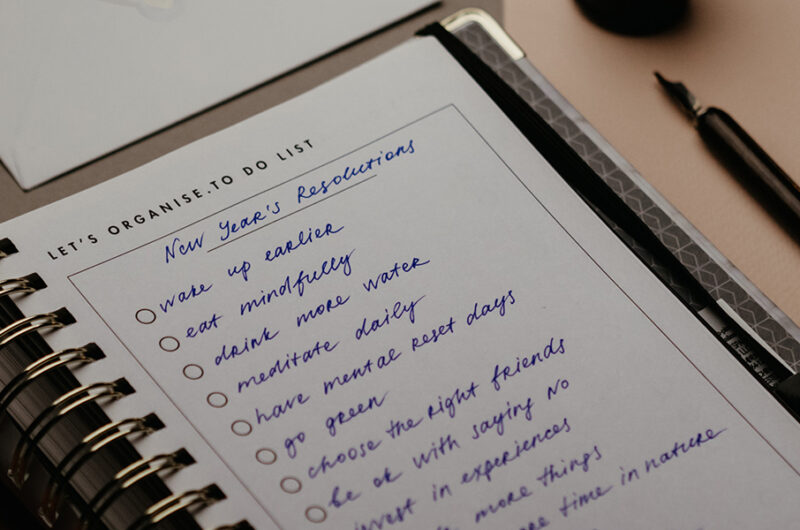 LET'S ORGANISE.TO DO LIST
New Year's Resolutions
wake up earlier
eat mindfully
drink more water
meditate daily
have mental reset days
go green
choose the right friends
be ok with saying NO
invest in experiences
more things
time in nature